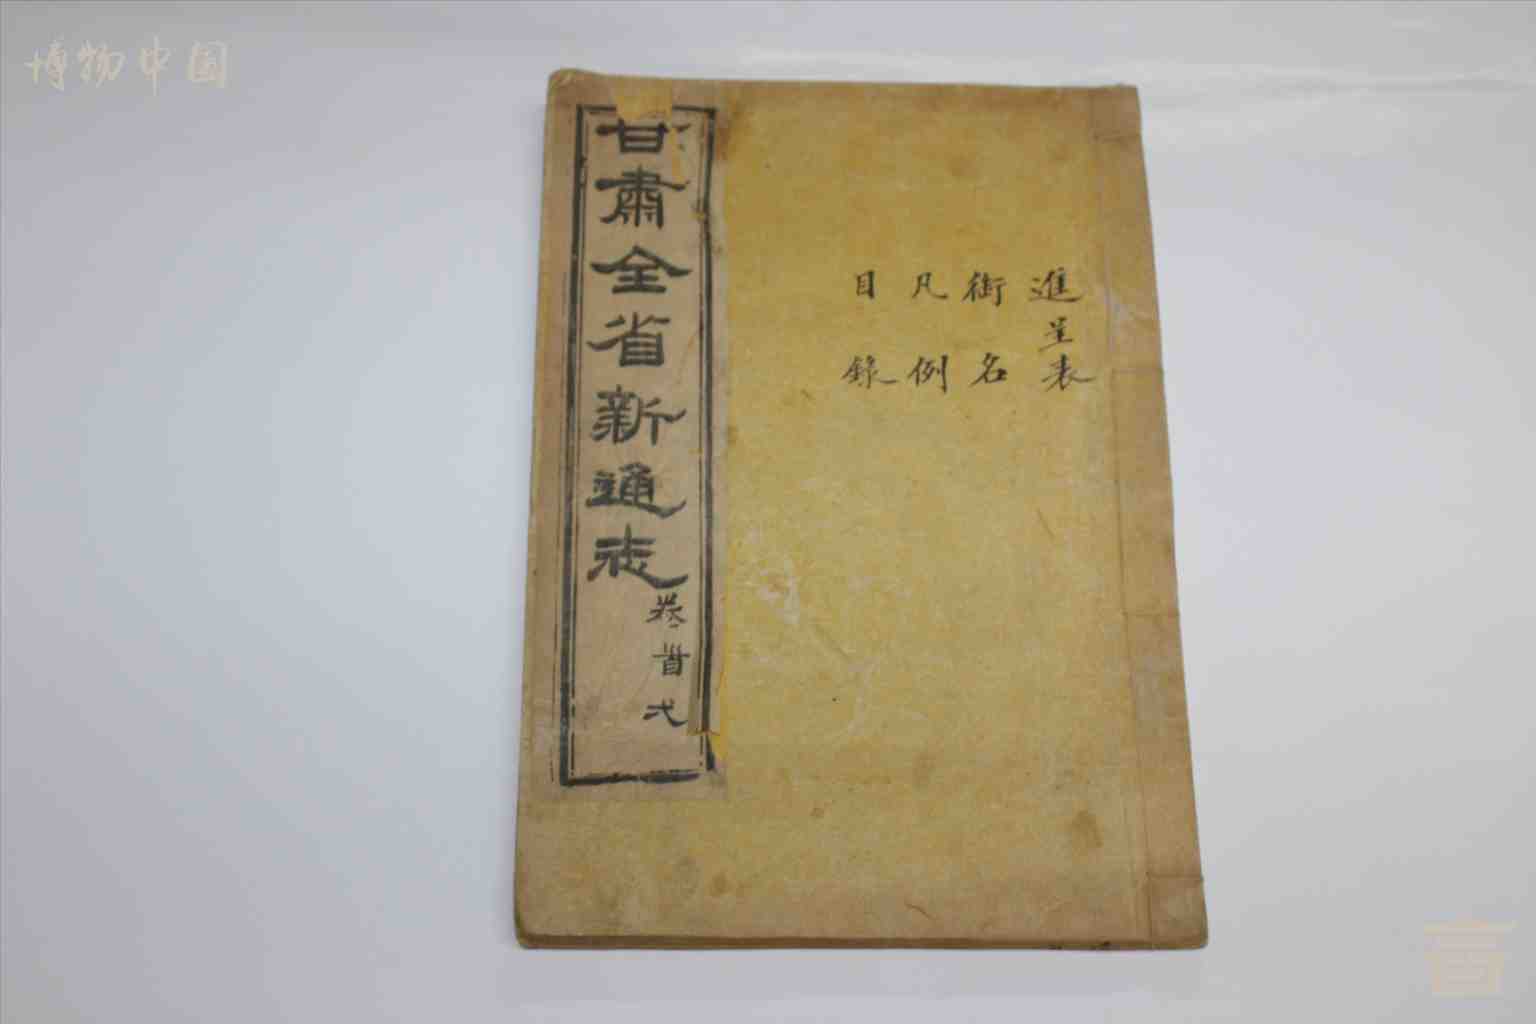 博物中国
進呈表
銜名
凡例
目錄
甘肅全省新通志
卷首弍